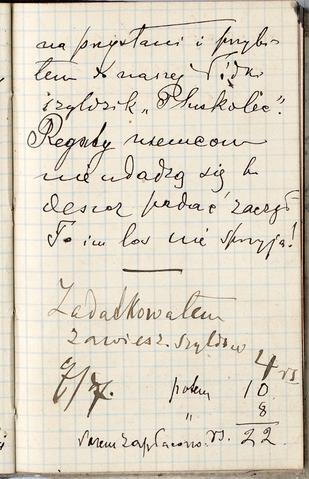 na przystani i przybi-
łem do naszej łódki
szyldzik „Pluskolec".
Regaty niemcom
nie udadzą się bo
deszcz padać zaczął
To im los nie sprzyja!
Zadatkowałem
zawiesz. szyldów
7/7. 4 rs
potem 10
" 8
razem zapłacono rs. 22